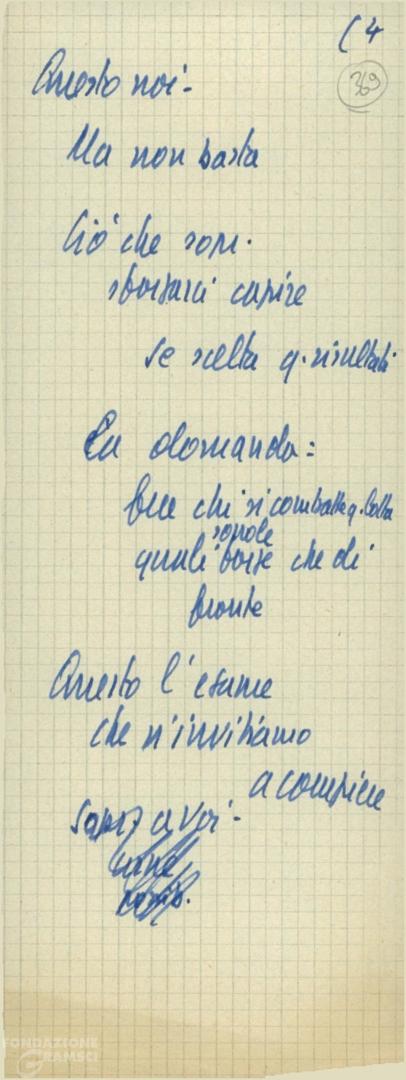 (4
369
Questo noi -
Ma non basta
Ciò che sopr.
sforzarci capire
se scelta q. risultati
La domanda:
fra chi si combatte q. lotta
sono le
quali forze che di
fronte
Questo l'esame
che vi invitiamo
a compiere
sopr. a voi -
FONDAZIONE
GRAMSCI